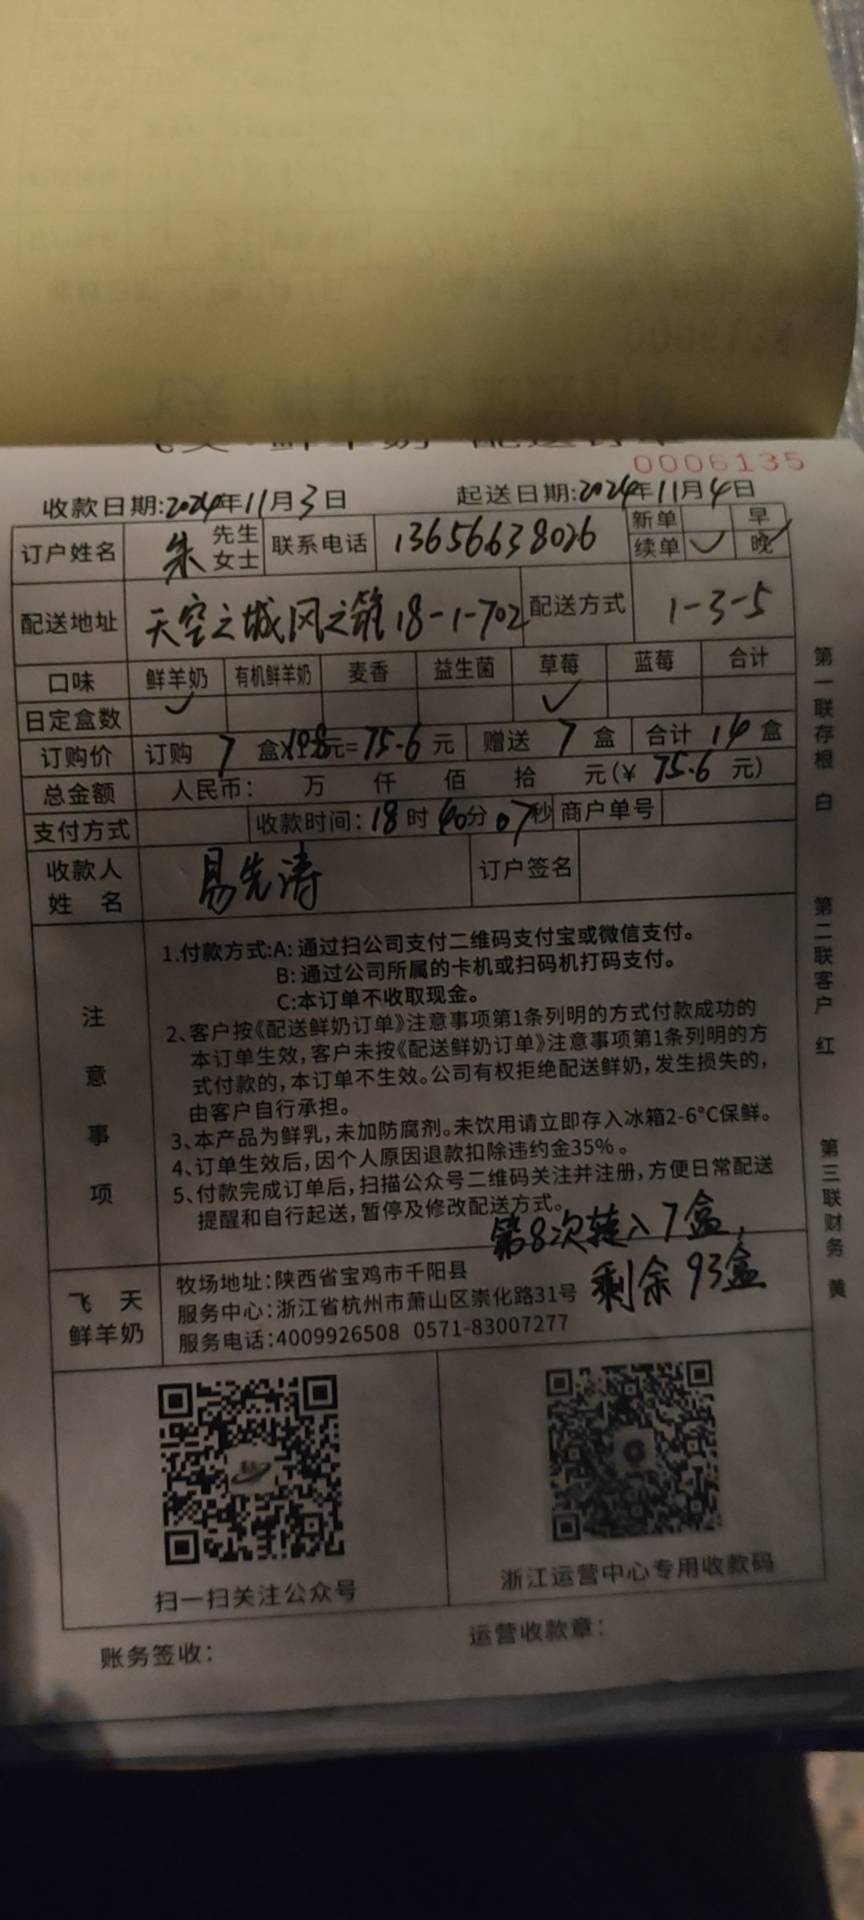 0006135
收款日期:2024年11月3日 起送日期:2024年11月4日
订户姓名 朱 先生 女士 联系电话 13656638026 新单 早
续单 ✓ 晚 ✓
配送地址 天空之城风之筑18-1-702 配送方式 1-3-5
口味 鲜羊奶 有机鲜羊奶 麦香 益生菌 草莓 蓝莓 合计
日定盒数 ✓ ✓
订购价 订购 7 盒 元=75.6元 赠送 7 盒 合计 14 盒
总金额 人民币: 万 仟 佰 拾 元(¥ 75.6 元)
支付方式 收款时间:18时40分07秒 商户单号
收款人姓名 易先涛 订户签名
注意事项
1.付款方式:A:通过扫公司支付二维码支付宝或微信支付。
B:通过公司所属的卡机或扫码机打码支付。
C:本订单不收取现金。
2、客户按《配送鲜奶订单》注意事项第1条列明的方式付款成功的
本订单生效,客户未按《配送鲜奶订单》注意事项第1条列明的方
式付款的,本订单不生效。公司有权拒绝配送鲜奶,发生损失的,
由客户自行承担。
3、本产品为鲜乳,未加防腐剂。未饮用请立即存入冰箱2-6°C保鲜。
4、订单生效后,因个人原因退款扣除违约金35%。
5、付款完成订单后,扫描公众号二维码关注并注册,方便日常配送
提醒和自行起送,暂停及修改配送方式。
第8次转入7盒,
剩余93盒
飞天鲜羊奶
牧场地址:陕西省宝鸡市千阳县
服务中心:浙江省杭州市萧山区崇化路31号
服务电话:4009926508 0571-83007277
扫一扫关注公众号 浙江运营中心专用收款码
账务签收: 运营收款章:
第一联存根 白
第二联客户 红
第三联财务 黄